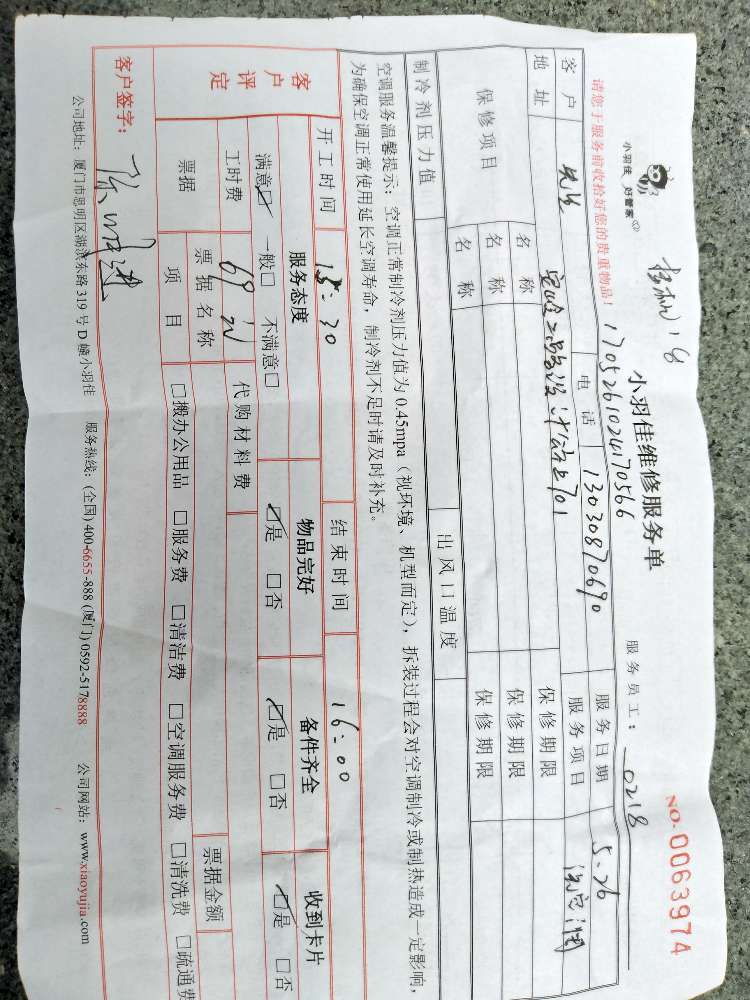 小羽佳 好管家
小羽佳维修服务单
NO.0063974
1705261024170566
服务员工：0218
请您于服务前收拾好您的贵重物品！
客户 电话 13030870690 服务日期 5.26
地址 服务项目
保修项目 名称 保修期限
名称 保修期限
名称 保修期限
制冷剂压力值 出风口温度
空调服务温馨提示：空调正常制冷剂压力值为 0.45mpa（视环境、机型而定），拆装过程会对空调制冷或制热造成一定影响，
为确保空调正常使用延长空调寿命，制冷剂不足时请及时补充。
开工时间 15:30 结束时间 16:00
客户评定 服务态度 物品完好 备件齐全 收到卡片
满意☑ 一般□ 不满意□ ☑是 □否 ☑是 □否 ☑是 □否
工时费 69 代购材料费
票据 票据名称 票据金额
项目 □搬办公用品 □服务费 □清洁费 □空调服务费 □清洗费 □疏通费
客户签字：
公司地址：厦门市思明区湖滨东路 319 号 D 幢小羽佳 服务热线：(全国) 400-6655-888 (厦门) 0592-5178888 公司网站：www.xiaoyujia.com